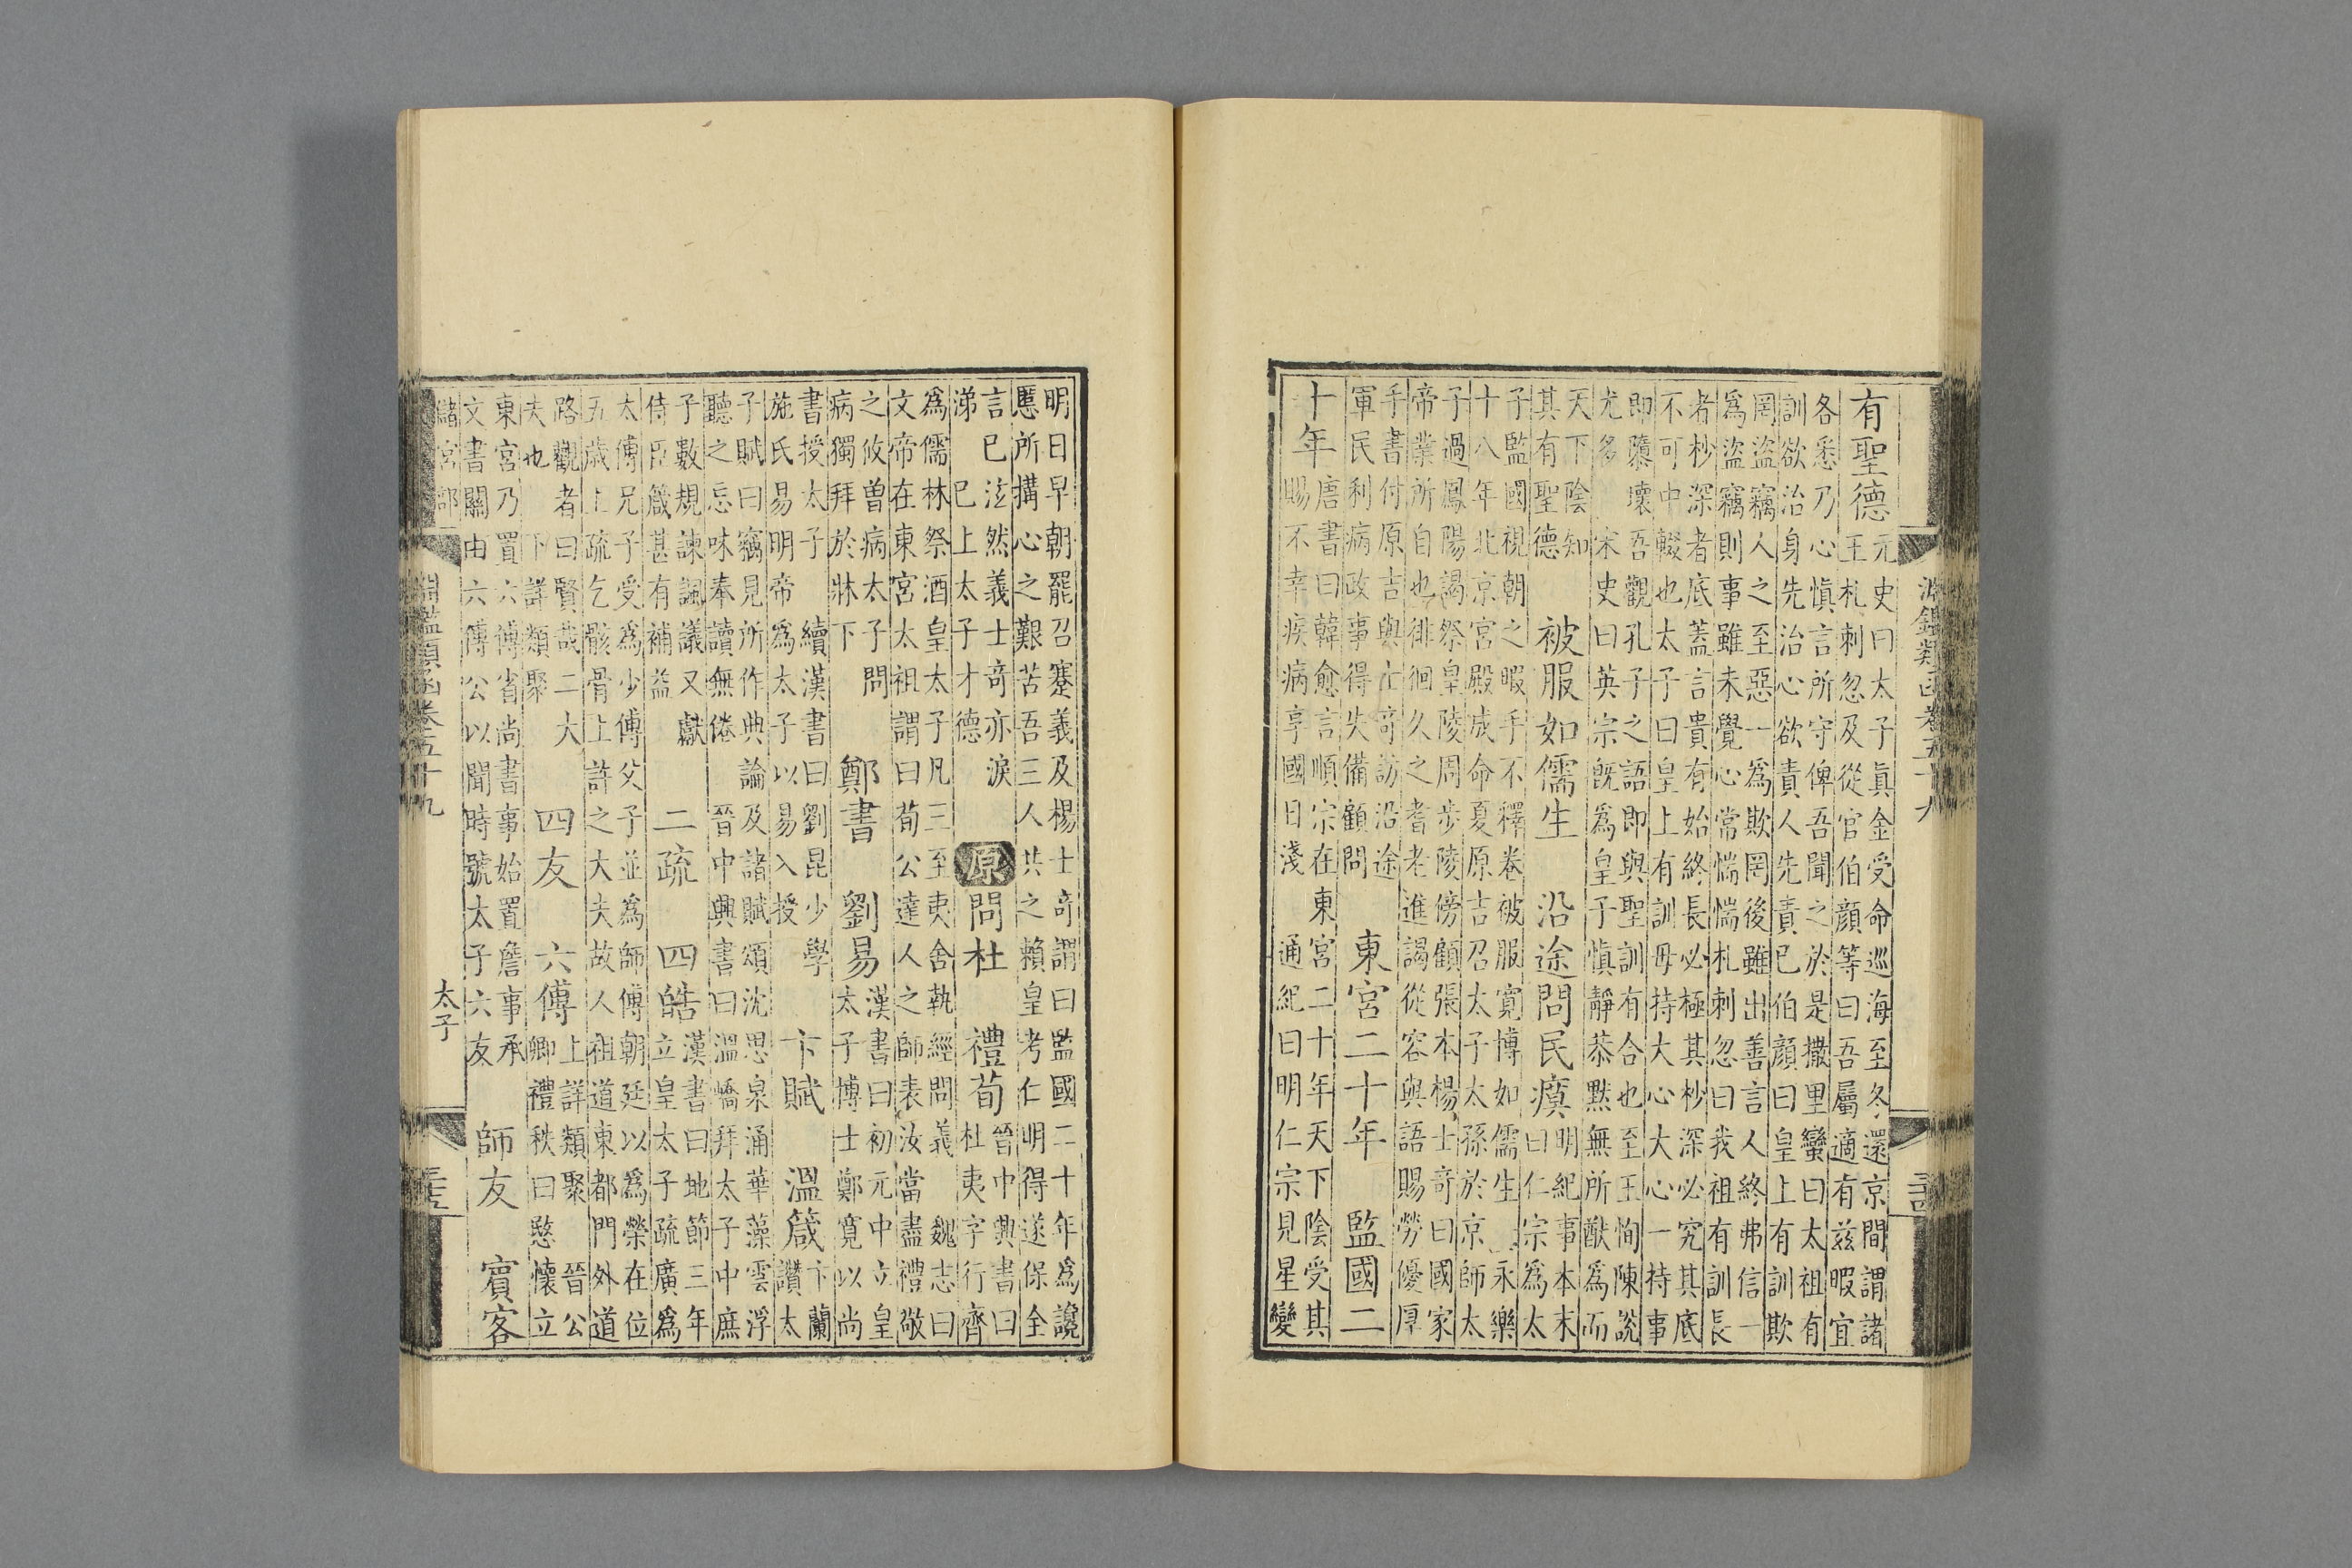 淵鑑類函卷五十九
有聖德
元史曰太子眞金受命巡海至冬還京間謂諸
王札剌忽及從官伯顏等曰吾屬適有茲暇宜
各悉乃心愼言所守俾吾聞之於是撒里蠻曰太祖有
訓欲治身先治心欲責人先責已伯顏曰皇上有訓欺
罔盜竊人之至惡一爲欺罔後雖出善言人終弗信一
爲盜竊則事雖未覺心常惴惴札剌忽曰我祖有訓長
者杪深者底蓋言貴有始終長必極其杪深必究其底
不可中輟也太子曰皇上有訓毋持大心大心一持事
即隳壞吾觀孔子之語即與聖訓有合也至王恂陳說
尤多 宋史曰英宗旣爲皇子愼靜恭默無所猷爲而
天下陰知
其有聖德
被服如儒生 沿途問民瘼
明紀事本末
曰仁宗爲太
子監國視朝之暇手不釋卷被服寬博如儒生 永樂
十八年北京宮殿成命夏原吉召太子太孫於京師太
子過鳳陽謁祭皇陵周步陵傍顧張本楊士奇曰國家
帝業所自也徘徊久之耆老進謁從容與語賜勞優厚
手書付原吉與士奇訪沿途
軍民利病政事得失備顧問
東宮二十年 監國二
十年
唐書曰韓愈言順宗在東宮二十年天下陰受其
賜不幸疾病享國日淺 通紀曰明仁宗見星變
明日早朝罷召蹇義及楊士奇謂曰監國二十年爲讒
慝所搆心之艱苦吾三人共之賴皇考仁明得遂保全
言已泫然義士奇亦淚
涕 已上太子才德
原 問杜 禮荀
晉中興書曰
杜夷字行齊
爲儒林祭酒皇太子凡三至夷舍執經問義 魏志曰
文帝在東宮太祖謂曰荀公達人之師表汝當盡禮敬
之攸曾病太子問
病獨拜於牀下
鄭書 劉易
漢書曰初元中立皇
太子博士鄭寬以尚
書授太子 續漢書曰劉昆少學
施氏易明帝爲太子以易入授
卞賦 溫箴
卞蘭
讚太
子賦曰竊見所作典論及諸賦頌沈思泉涌華藻雲浮
聽之忘味奉讀無倦 晉中興書曰溫嶠拜太子中庶
子數規諫諷議又獻
侍臣箴甚有補益
二疏 四皓
漢書曰地節三年
立皇太子疏廣爲
太傅兄子受爲少傅父子並爲師傅朝廷以爲榮在位
五歲上疏乞骸骨上許之大夫故人祖道東都門外道
路觀者曰賢哉二大
夫也 下詳類聚
四友 六傅
上詳類聚 晉公
卿禮秩曰愍懷立
東宮乃置六傅省尚書事始置詹事承
文書關由六傅公以聞時號太子六友
師友 賓客
儲宮部
淵鑑類函卷五十九
太子